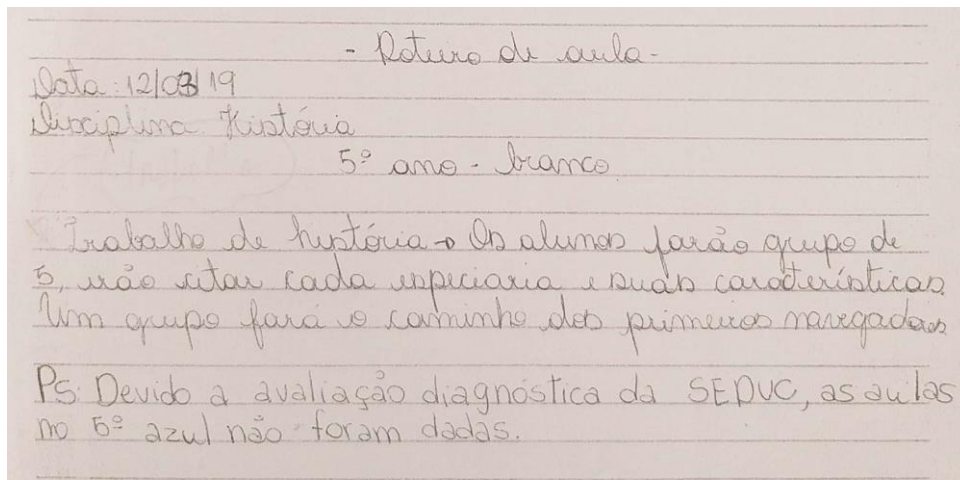 - Roteiro de aula -
Data: 12/03/19
Disciplina: História
5º ano - branco
Trabalho de história → Os alunos farão grupo de
5, irão citar cada especiaria e suas características.
Um grupo fará o caminho dos primeiros navegadores
PS: Devido a avaliação diagnóstica da SEDUC, as aulas
no 5º azul não foram dadas.